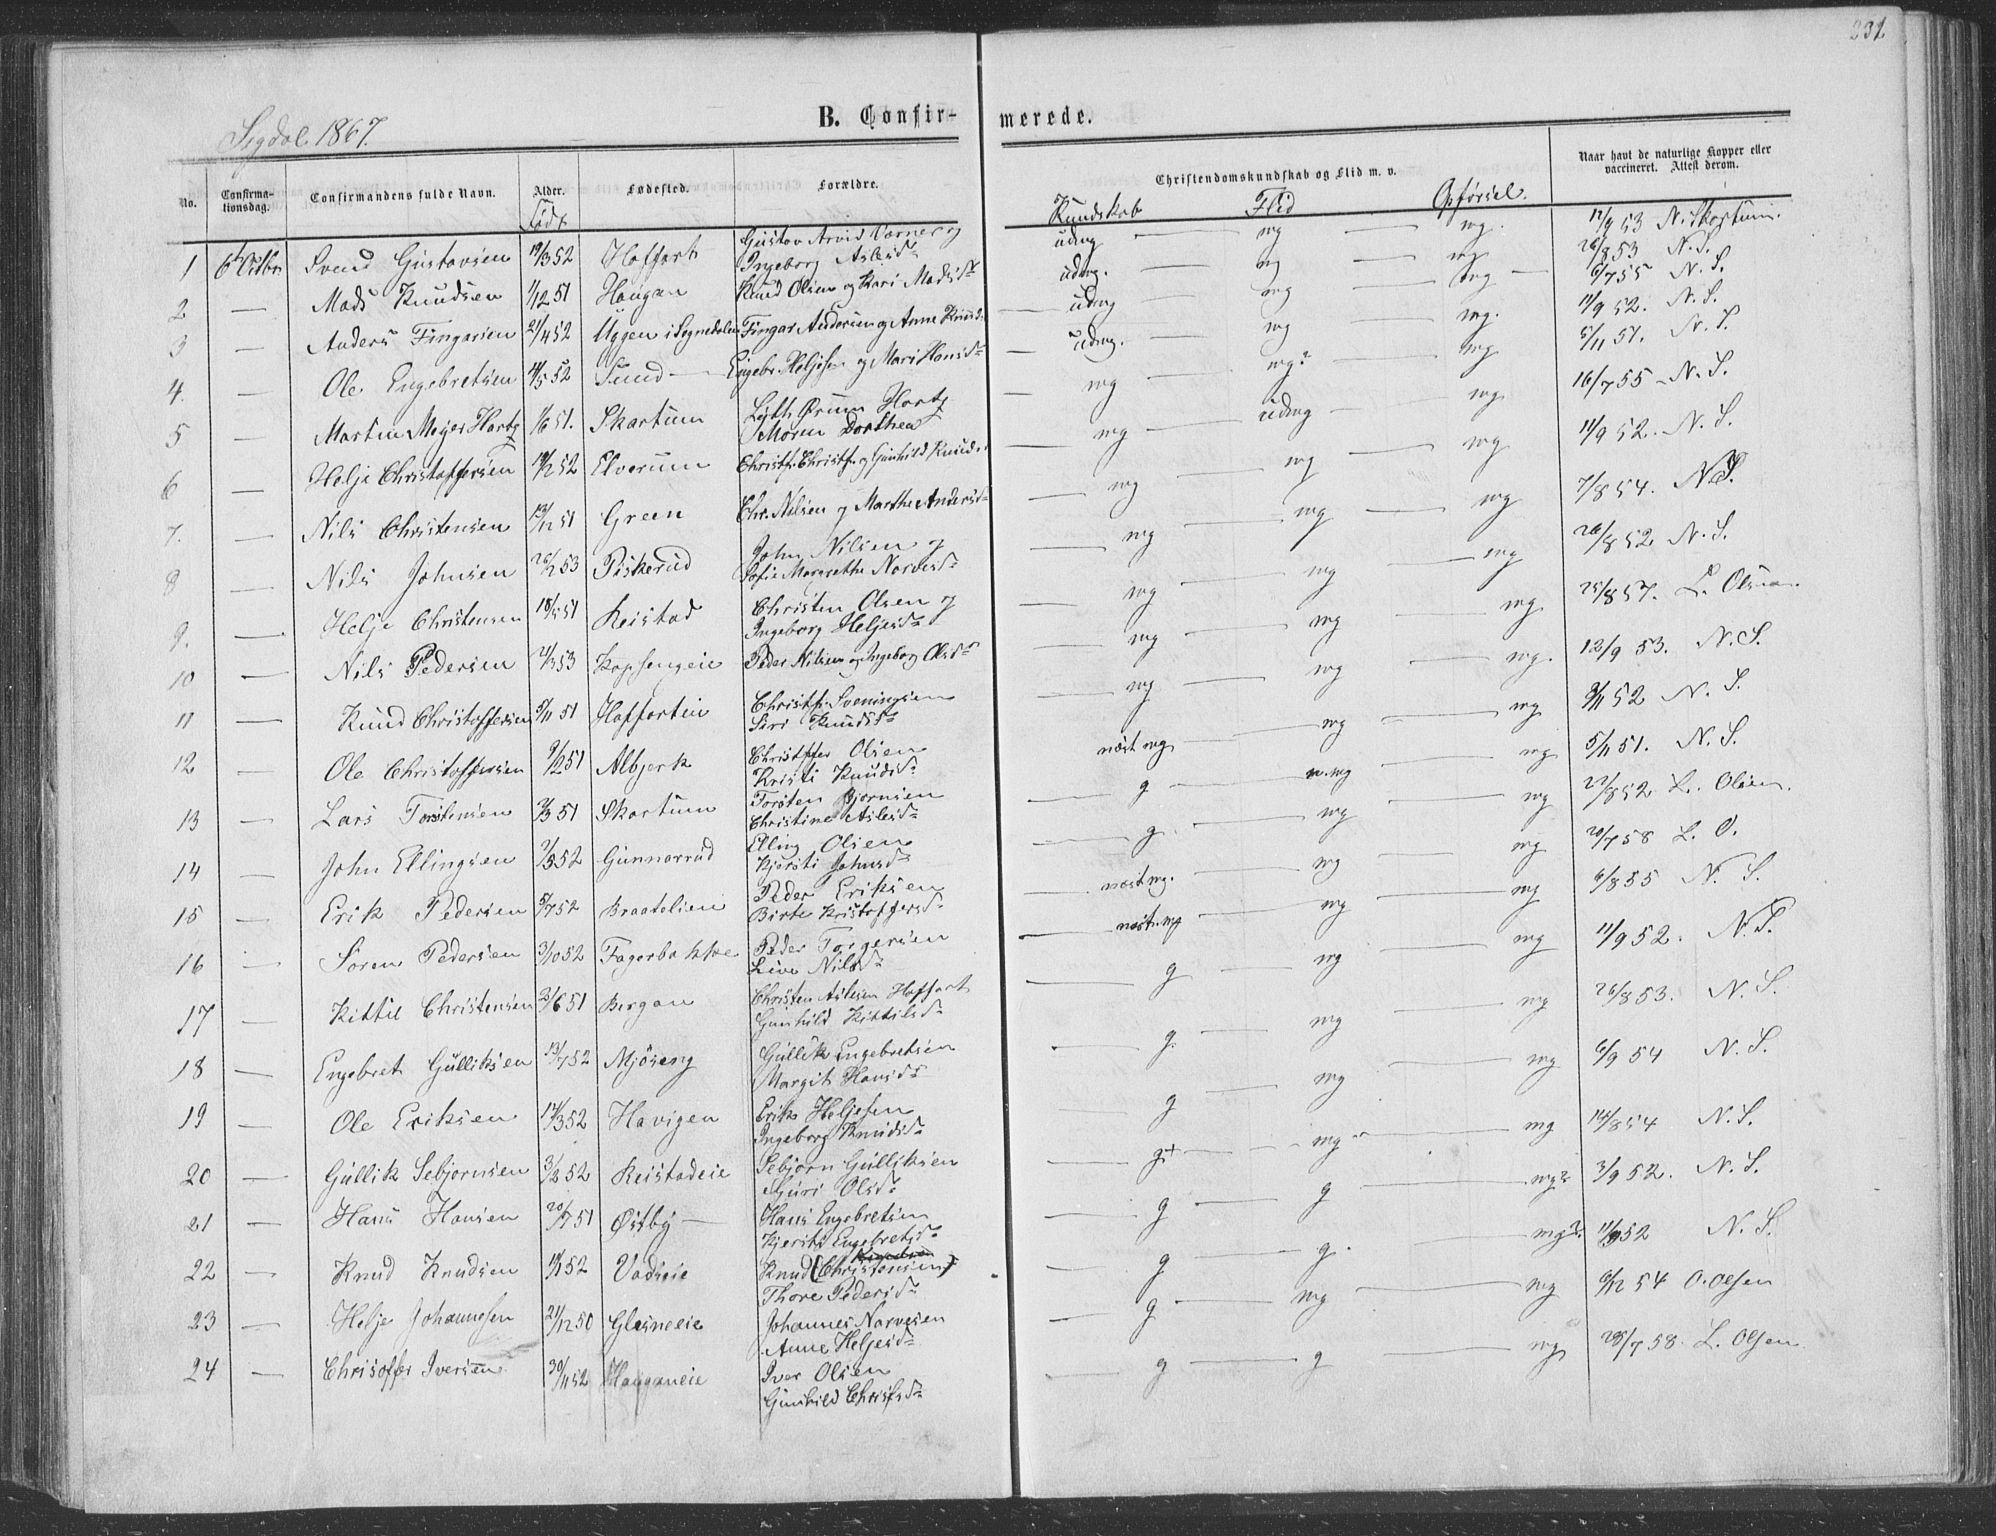 231
Sigdal 1867.
B. Confir-
merede.
No.
Confirma-
tionsdag.
Confirmandens fulde Navn.
Alder.
Født
Fødested.
Forældre.
Christendomskundskab og Flid m. v.
Kundskab Flid Opførsel.
Naar havt de naturlige Kopper eller
vaccineret. Attest derom.
Gustav Arvid Varner og
1 6 Octbr Svend Gustavsen 19/3 52 Hoffart Ingeborg Aslesd. udmg — mg — mg. 17/9 53 N. Skartum.
2 — Mads Knudsen 1/12 51 Haugan Knud Olsen og Kari Madsd. udmg. — mg — mg 26/8 53 N. S.
3 — Anders Fingarsen 21/4 52 Uggen i Sognedalen Fingar Andersen og Anne Knudsd. udmg — mg — mg — 6/7 55 N. S.
4. — Ole Engebretsen 4/5 52 Sund — Engebr. Heljesen og Mari Hansd. — udmg. — mg — mg. 11/9 52. N. S.
5 — Martin Meyer Hartz 1/6 51. Skartum Lyth Ørum Hartz
Moren Dorthea — mg — mg? — mg 5/11 51. N. S.
6 — Helje Christoffersen 19/2 52 Elverum Christf. Christf. og Gunhild Knudsd. — mg — udmg — mg 16/7 55 - N. S.
7. — Nils Christensen 13/12 51 Green Chr. Nilsen og Marthe Andersd. — mg — mg — mg 11/9 52. N. S.
8 — Nils Johnsen 26/2 53 Piskerud John Nilsen og
Sofie Margrethe Narvesd. — mg — mg — mg 7/8 54. N. S.
9. — Helje Christensen 18/5 51 Keistad Christen Olsen og
Ingeborg Heljesd. — mg — mg — mg 26/8 52 N. S.
10 — Nils Pedersen 21/3 53 Kopsengeie Peder Nilsen og Ingeborg Olsd. — mg — mg — mg 25/8 57. L. Olsen.
11 — Knud Christoffersen 5/11 51 Hoffartin Christf. Sveningsen
Siri Knudsd. — mg — mg — mg. 12/9 53. N. S.
12 — Ole Christoffersen 9/12 51 Albjerk Christoffer Olsen
Kristi Knudsd. næst mg — mg — mg 3/11 52 N. S.
13 — Lars Torstensen 3/3 51 Skartum Torsten Bjornsen
Christine Aslesd. — g — n. mg — mg 5/11 51. N. S.
14 — John Ellingsen 2/5 52 Gunnarrud Elling Olsen
Kjersti Johnsd. — g — mg — mg 27/8 52 L. Olsen.
15 — Erik Pedersen 5/7 52 Braatelien Peder Eriksen
Birte Kristoffersd. — næst mg. — mg — mg 20/7 58 L. O.
16 — Søren Pedersen 3/10 52 Fagerbakke Peder Torgersen
Live Nilsd. — næst mg — mg — mg 6/8 55 N. S.
17 — Kittil Christensen 21/6 51 Bergan Christen Aslesen Hoffart
Gunhild Kittilsd. — g — mg — mg 11/9 52. N. S.
18 — Engebret Gulliksen 13/7 52 Mjøseng Gullik Engebretsen
Margit Hansd. — g. — mg — mg 26/8 53. N. S.
19 — Ole Eriksen 14/3 52 Havigen Erik Heljesen
Ingeborg Knudsd. — g — mg — mg 6/9 54 N. S.
20 — Gullik Sebjornsen 3/2 52 Keistadeie Sebjørn Gulliksen
Guri Olsd. — g+ — mg — mg 14/8 54 N. S.
21 — Hans Hansen 20/7 51 Østby — Hans Engebretsen
Kjersti Engebretsd. — g — g — mg? 3/9 52. N. S.
22 — Knud Knudsen 11/1 52 Vadseie Knud (Christensen)
Thore Pedersd. — g — g. — mg? 11/9 52 N. S.
23 — Helje Johannesen 21/12 50 Glesneeie Johannes Narvesen
Anne Heljesd. — g — mg — mg 6/12 54 O. Olsen
24 — Chrisoffer Iversen 30/11 52 Hauganeie Iver Olsen
Gunhild Chrisfsd. — g — g — mg 28/7 58. L. Olsen.